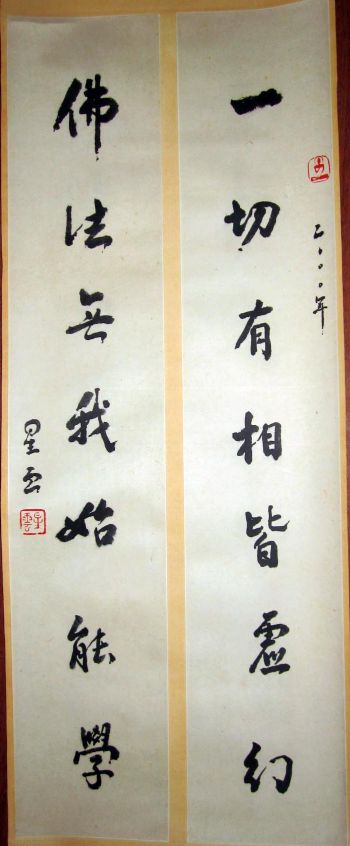 一切有相皆虛幻
二〇〇〇年
佛法無我始能學
星雲
星雲